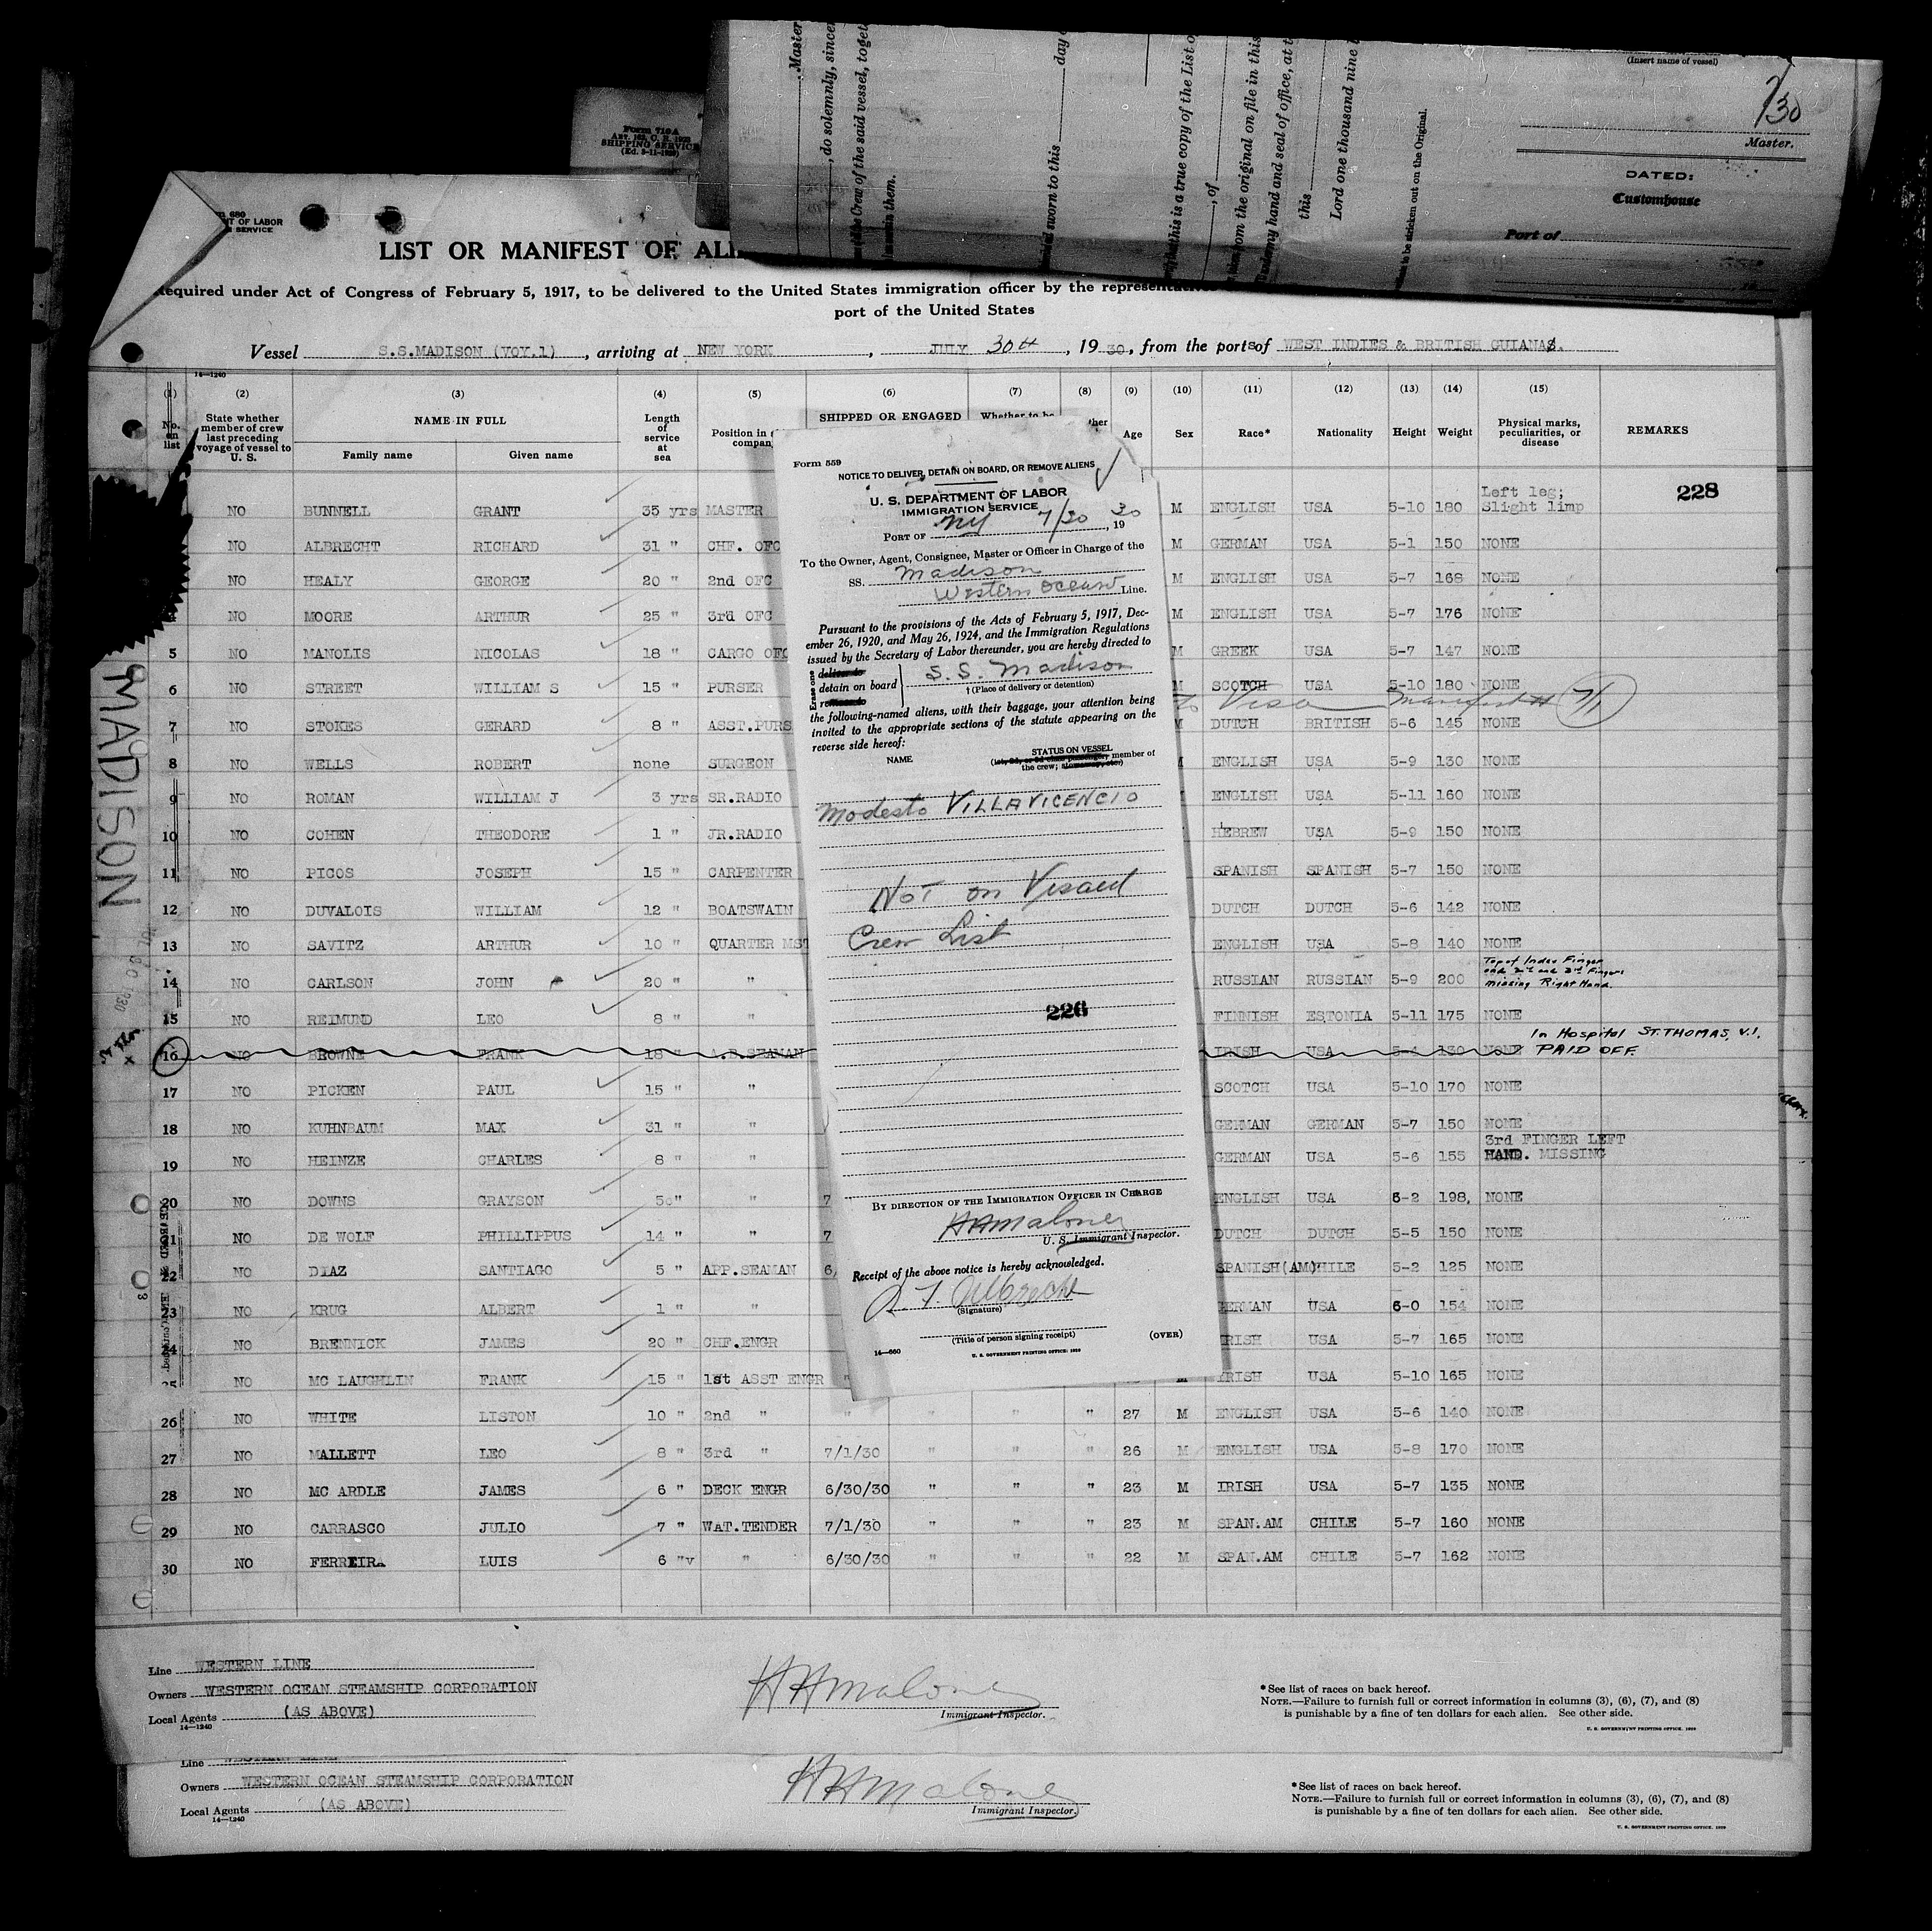 (Insert name of vessel)
/30
Master.
DATED:
Customhouse
Port of
Master
, do solemnly, since
the Crew of the said vessel, toget
in them.
sworn to this day
this is a true copy of the List o
, of
from the original on file in this
my hand and seal of office, at t
this
Lord one thousand nine
to be stricken out on the Original.
Form 710A
SHIPPING SERVICE
680
T OF LABOR
SERVICE
LIST OR MANIFEST OF ALI
equired under Act of Congress of February 5, 1917, to be delivered to the United States immigration officer by the representativ
port of the United States
Vessel S.S.MADISON (VOY.1), arriving at NEW YORK, JULY 30th, 1930, from the ports of WEST INDIES & BRITISH GUIANA.
14—1240
(1) (2) (3) (4) (5) (6) (7) (8) (9) (10) (11) (12) (13) (14) (15)
No. on list
State whether member of crew last preceding voyage of vessel to U. S.
NAME IN FULL
Family name Given name
Length of service at sea
Position in
company
SHIPPED OR ENGAGED
Whether to be
Age Sex Race* Nationality Height Weight
Physical marks, peculiarities, or disease
REMARKS
228
NO BUNNELL GRANT 35 yrs MASTER M ENGLISH USA 5-10 180 Left leg; Slight limp
NO ALBRECHT RICHARD 31 " CHF. OFC M GERMAN USA 5-1 150 NONE
NO HEALY GEORGE 20 " 2nd OFC M ENGLISH USA 5-7 168 NONE
4 NO MOORE ARTHUR 25 " 3rd OFC M ENGLISH USA 5-7 176 NONE
5 NO MANOLIS NICOLAS 18 " CARGO OFC M GREEK USA 5-7 147 NONE
6 NO STREET WILLIAM S 15 " PURSER M SCOTCH USA 5-10 180 NONE
to Visa Manifest 7/1
7 NO STOKES GERARD 8 " ASST.PURS M DUTCH BRITISH 5-6 145 NONE
8 NO WELLS ROBERT none SURGEON ENGLISH USA 5-9 130 NONE
9 NO ROMAN WILLIAM J 3 yrs SR.RADIO ENGLISH USA 5-11 160 NONE
10 NO COHEN THEODORE 1 " JR.RADIO HEBREW USA 5-9 150 NONE
11 NO PICOS JOSEPH 15 " CARPENTER SPANISH SPANISH 5-7 150 NONE
12 NO DUVALOIS WILLIAM 12 " BOATSWAIN DUTCH DUTCH 5-6 142 NONE
13 NO SAVITZ ARTHUR 10 " QUARTER MST ENGLISH USA 5-8 140 NONE
14 NO CARLSON JOHN 20 " " RUSSIAN RUSSIAN 5-9 200 Top of Index Finger and 2nd and 3rd Fingers missing Right Hand.
15 NO REIMUND LEO 8 " " FINNISH ESTONIA 5-11 175 NONE
16 NO BROWNE FRANK 18 " A.B.SEAMAN IRISH USA 5-4 130 NONE In Hospital ST. THOMAS, V.I. PAID OFF.
17 NO PICKEN PAUL 15 " SCOTCH USA 5-10 170 NONE
18 NO KUHNBAUM MAX 31 " " GERMAN GERMAN 5-7 150 NONE
19 NO HEINZE CHARLES 8 " " GERMAN USA 5-6 155 3rd FINGER LEFT HAND. MISSING
20 NO DOWNS GRAYSON 5 " " 7 ENGLISH USA 6-2 198, NONE
21 NO DE WOLF PHILLIPPUS 14 " " 7 DUTCH DUTCH 5-5 150 NONE
22 NO DIAZ SANTIAGO 5 " APP.SEAMAN 6/ SPANISH(AM) CHILE 5-2 125 NONE
23 NO KRUG ALBERT 1 " " GERMAN USA 6-0 154 NONE
24 NO BRENNICK JAMES 20 " CHF.ENGR IRISH USA 5-7 165 NONE
25 NO MC LAUGHLIN FRANK 15 " 1st ASST ENGR " M IRISH USA 5-10 165 NONE
26 NO WHITE LISTON 10 " 2nd " " " " " 27 M ENGLISH USA 5-6 140 NONE
27 NO MALLETT LEO 8 " 3rd " 7/1/30 " " " 26 M ENGLISH USA 5-8 170 NONE
28 NO MC ARDLE JAMES 6 " DECK ENGR 6/30/30 " " " 23 M IRISH USA 5-7 135 NONE
29 NO CARRASCO JULIO 7 " WAT.TENDER 7/1/30 " " " 23 M SPAN.AM CHILE 5-7 160 NONE
30 NO FERREIRA LUIS 6 "v " 6/30/30 " " " 22 M SPAN.AM CHILE 5-7 162 NONE
MADISON
Form 559
NOTICE TO DELIVER, DETAIN ON BOARD, OR REMOVE ALIENS
U. S. DEPARTMENT OF LABOR
IMMIGRATION SERVICE
PORT OF NY 7/30, 1930
To the Owner, Agent, Consignee, Master or Officer in Charge of the
SS. Madison
Western Ocean Line.
Pursuant to the provisions of the Acts of February 5, 1917, Dec-
ember 26, 1920, and May 26, 1924, and the Immigration Regulations
issued by the Secretary of Labor thereunder, you are hereby directed to
Erase one
deliver to
detain on board
remove to
S.S. Madison
† (Place of delivery or detention)
the following-named aliens, with their baggage, your attention being
invited to the appropriate sections of the statute appearing on the
reverse side hereof:
NAME
STATUS ON VESSEL
(1st, 2d, or 3d class passenger, member of
the crew; stowaway, etc.)
Modesto VILLAVICENCIO
NOT on Visaed
Crew List
226
BY DIRECTION OF THE IMMIGRATION OFFICER IN CHARGE
HHMaloney
U. S. Immigrant Inspector.
Receipt of the above notice is hereby acknowledged.
Albrecht
(Signature)
(Title of person signing receipt)
(OVER)
14—660
U. S. GOVERNMENT PRINTING OFFICE: 1929
Line WESTERN LINE
Owners WESTERN OCEAN STEAMSHIP CORPORATION
Local Agents (AS ABOVE)
14—1240
HHMaloney
Immigrant Inspector.
*See list of races on back hereof.
NOTE.—Failure to furnish full or correct information in columns (3), (6), (7), and (8)
is punishable by a fine of ten dollars for each alien. See other side.
U. S. GOVERNMENT PRINTING OFFICE: 1929
Line WESTERN LINE
Owners WESTERN OCEAN STEAMSHIP CORPORATION
Local Agents (AS ABOVE)
14—1240
HHMaloney
Immigrant Inspector.
*See list of races on back hereof.
NOTE.—Failure to furnish full or correct information in columns (3), (6), (7), and (8)
is punishable by a fine of ten dollars for each alien. See other side.
U. S. GOVERNMENT PRINTING OFFICE: 1929